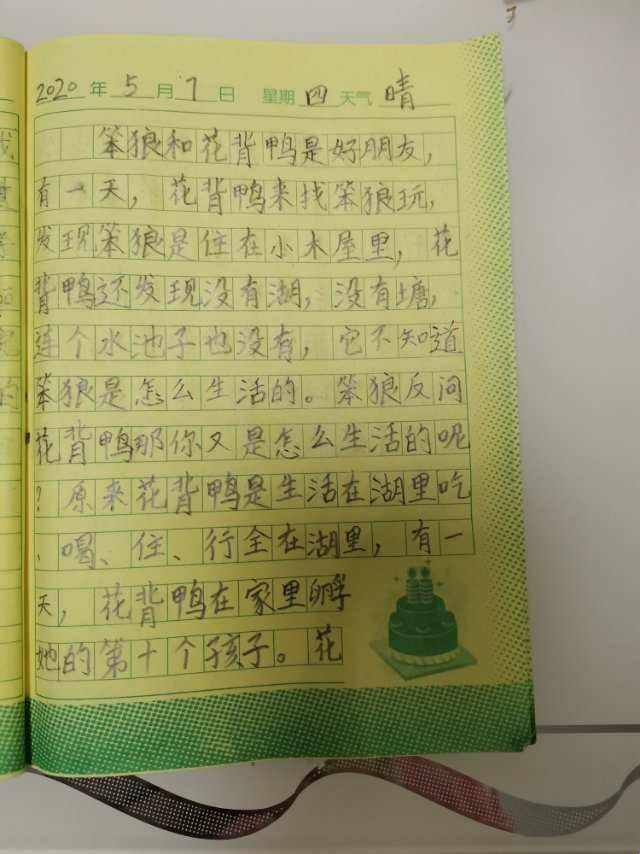 2020年5月7日 星期四 天气 晴
笨狼和花背鸭是好朋友,
有一天，花背鸭来找笨狼玩,
发现笨狼是住在小木屋里，花
背鸭还发现没有湖，没有塘,
连个水池子也没有，它不知道
笨狼是怎么生活的。笨狼反问
花背鸭那你又是怎么生活的呢
？原来花背鸭是生活在湖里吃
、喝、住、行全在湖里，有一
天，花背鸭在家里孵
她的第十个孩子。花